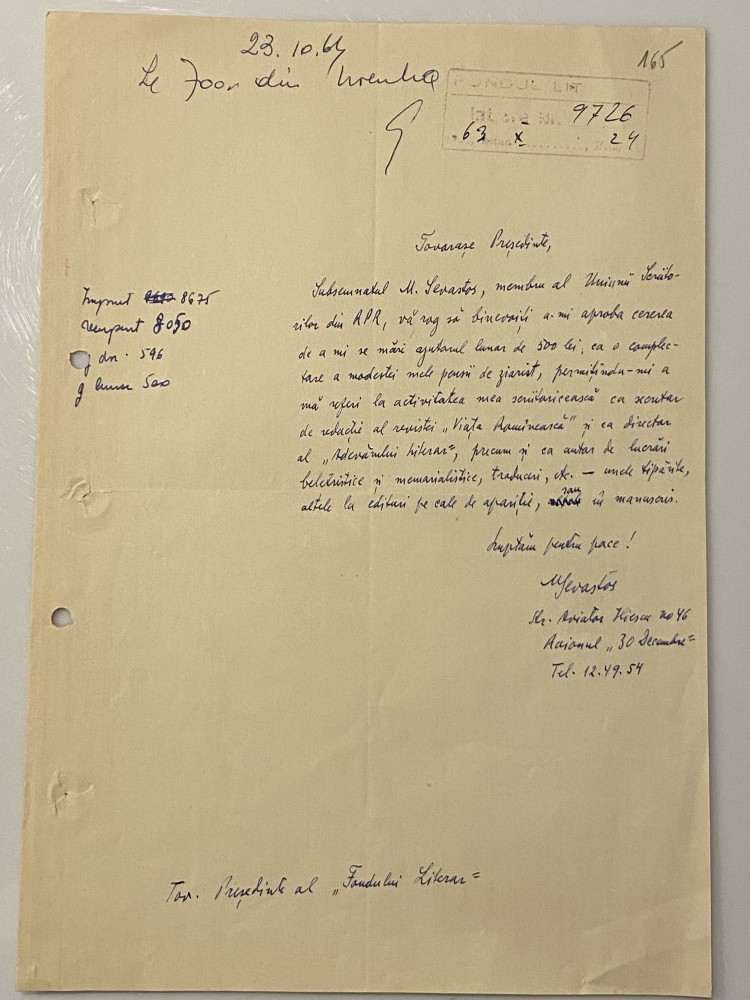 23.10.64
165
La 700 din
FONDUL LIT
9726
63 X 24
Tovarașe Președinte,
Subsemnatul M. Sevastos, membru al Uniunii Scriito-
rilor din RPR, vă rog să binevoiți a-mi aproba cererea
de a mi se mări ajutorul lunar de 500 lei, ca o complec-
tare a modestei mele pensii de ziarist, permițîndu-mi a
mă referi la activitatea mea scriitoricească ca secretar
de redacție al revistei „Viața Romînească" și ca director
al „Adevărului Literar", precum și ca autor de lucrări
beletristice și memorialistice, traduceri, etc. — unele tipărite,
altele la edituri pe cale de apariție, sau în manuscris.
Luptăm pentru pace!
MSevastos
Str. Aviator Iliescu no 46
Raionul „30 Decembrie"
Tel. 12.49.54
Împrut 8675
8050
596
g lunar 500
Tov. Președinte al „Fondului Literar"